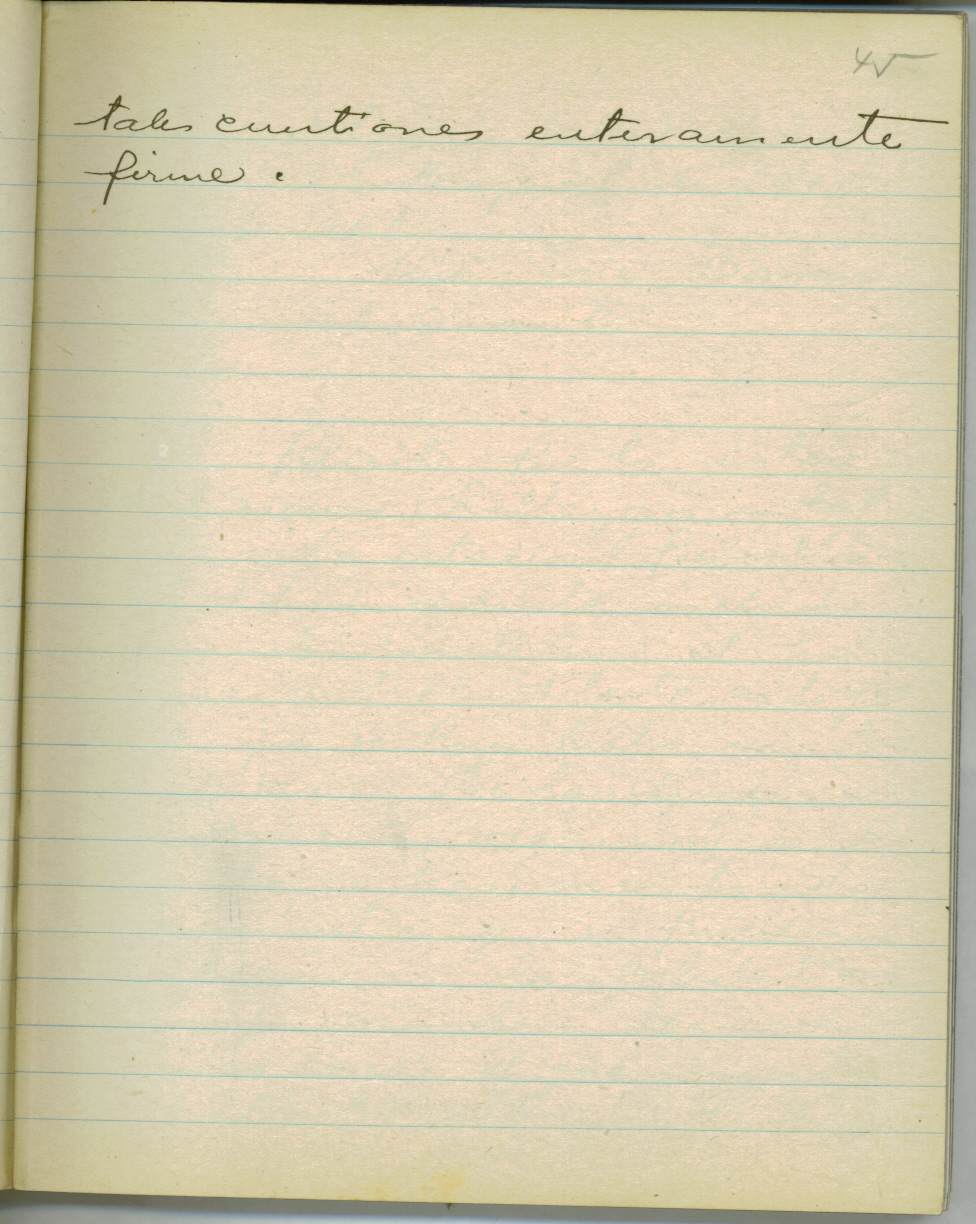 45
tales cuestiones enteramente
firme.